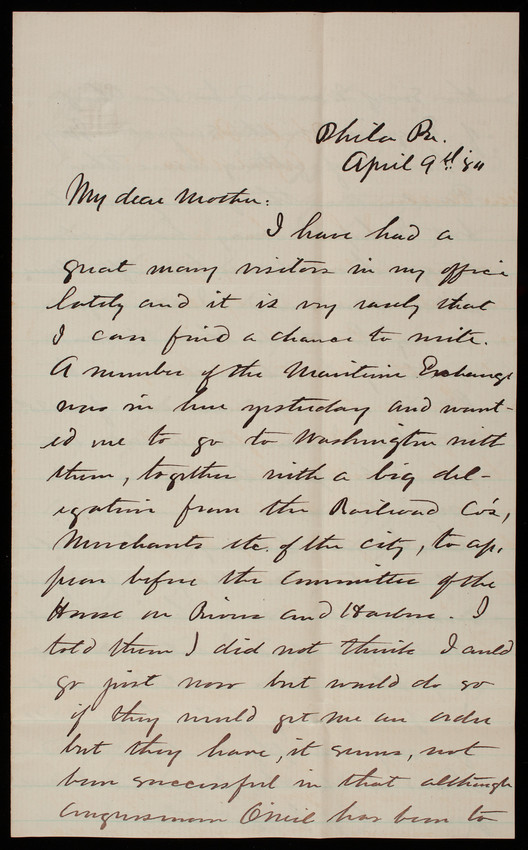 Phila Pa.
April 9th '84
My dear Mother:
I have had a
great many visitors in my office
lately and it is very rarely that
I can find a chance to write.
A member of the Maritime Exchange
was in here yesterday and want-
ed me to go to Washington with
them, together with a big del-
egation from the Railroad Co's,
Merchants etc. of the City, to ap-
pear before the Committee of the
House on Rivers and Harbors. I
told them I did not think I could
go just now but would do so
if they would get me an order
but they have, it seems, not
been successful in that although
Congressman O'Neil has been to